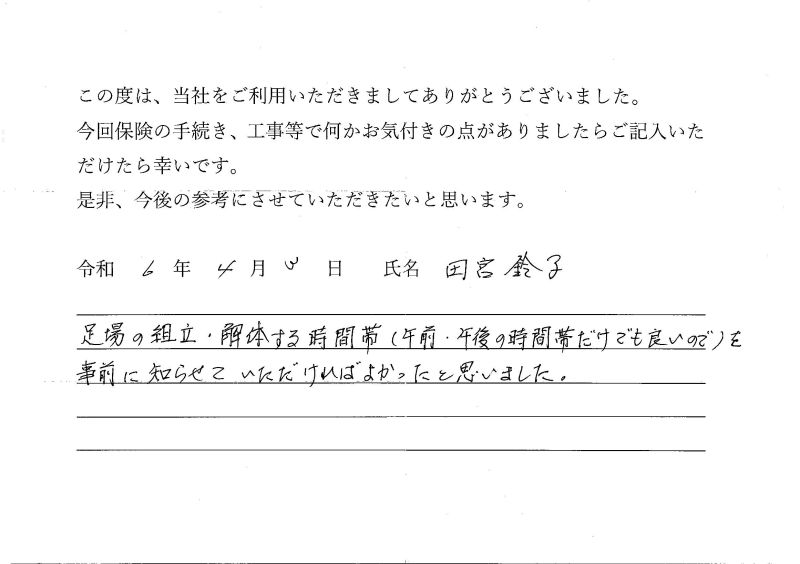 この度は、当社をご利用いただきましてありがとうございました。
今回保険の手続き、工事等で何かお気付きの点がありましたらご記入いた
だけたら幸いです。
是非、今後の参考にさせていただきたいと思います。
令和 6 年 4 月 3 日 氏名 田宮鈴子
足場の組立・解体する時間帯(午前・午後の時間帯だけでも良いので)を
事前に知らせていただければよかったと思いました。